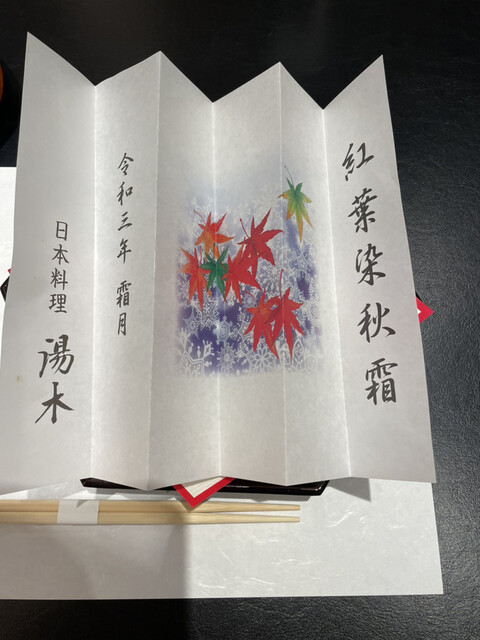 紅葉染秋霜
令和三年 霜月
日本料理 湯木